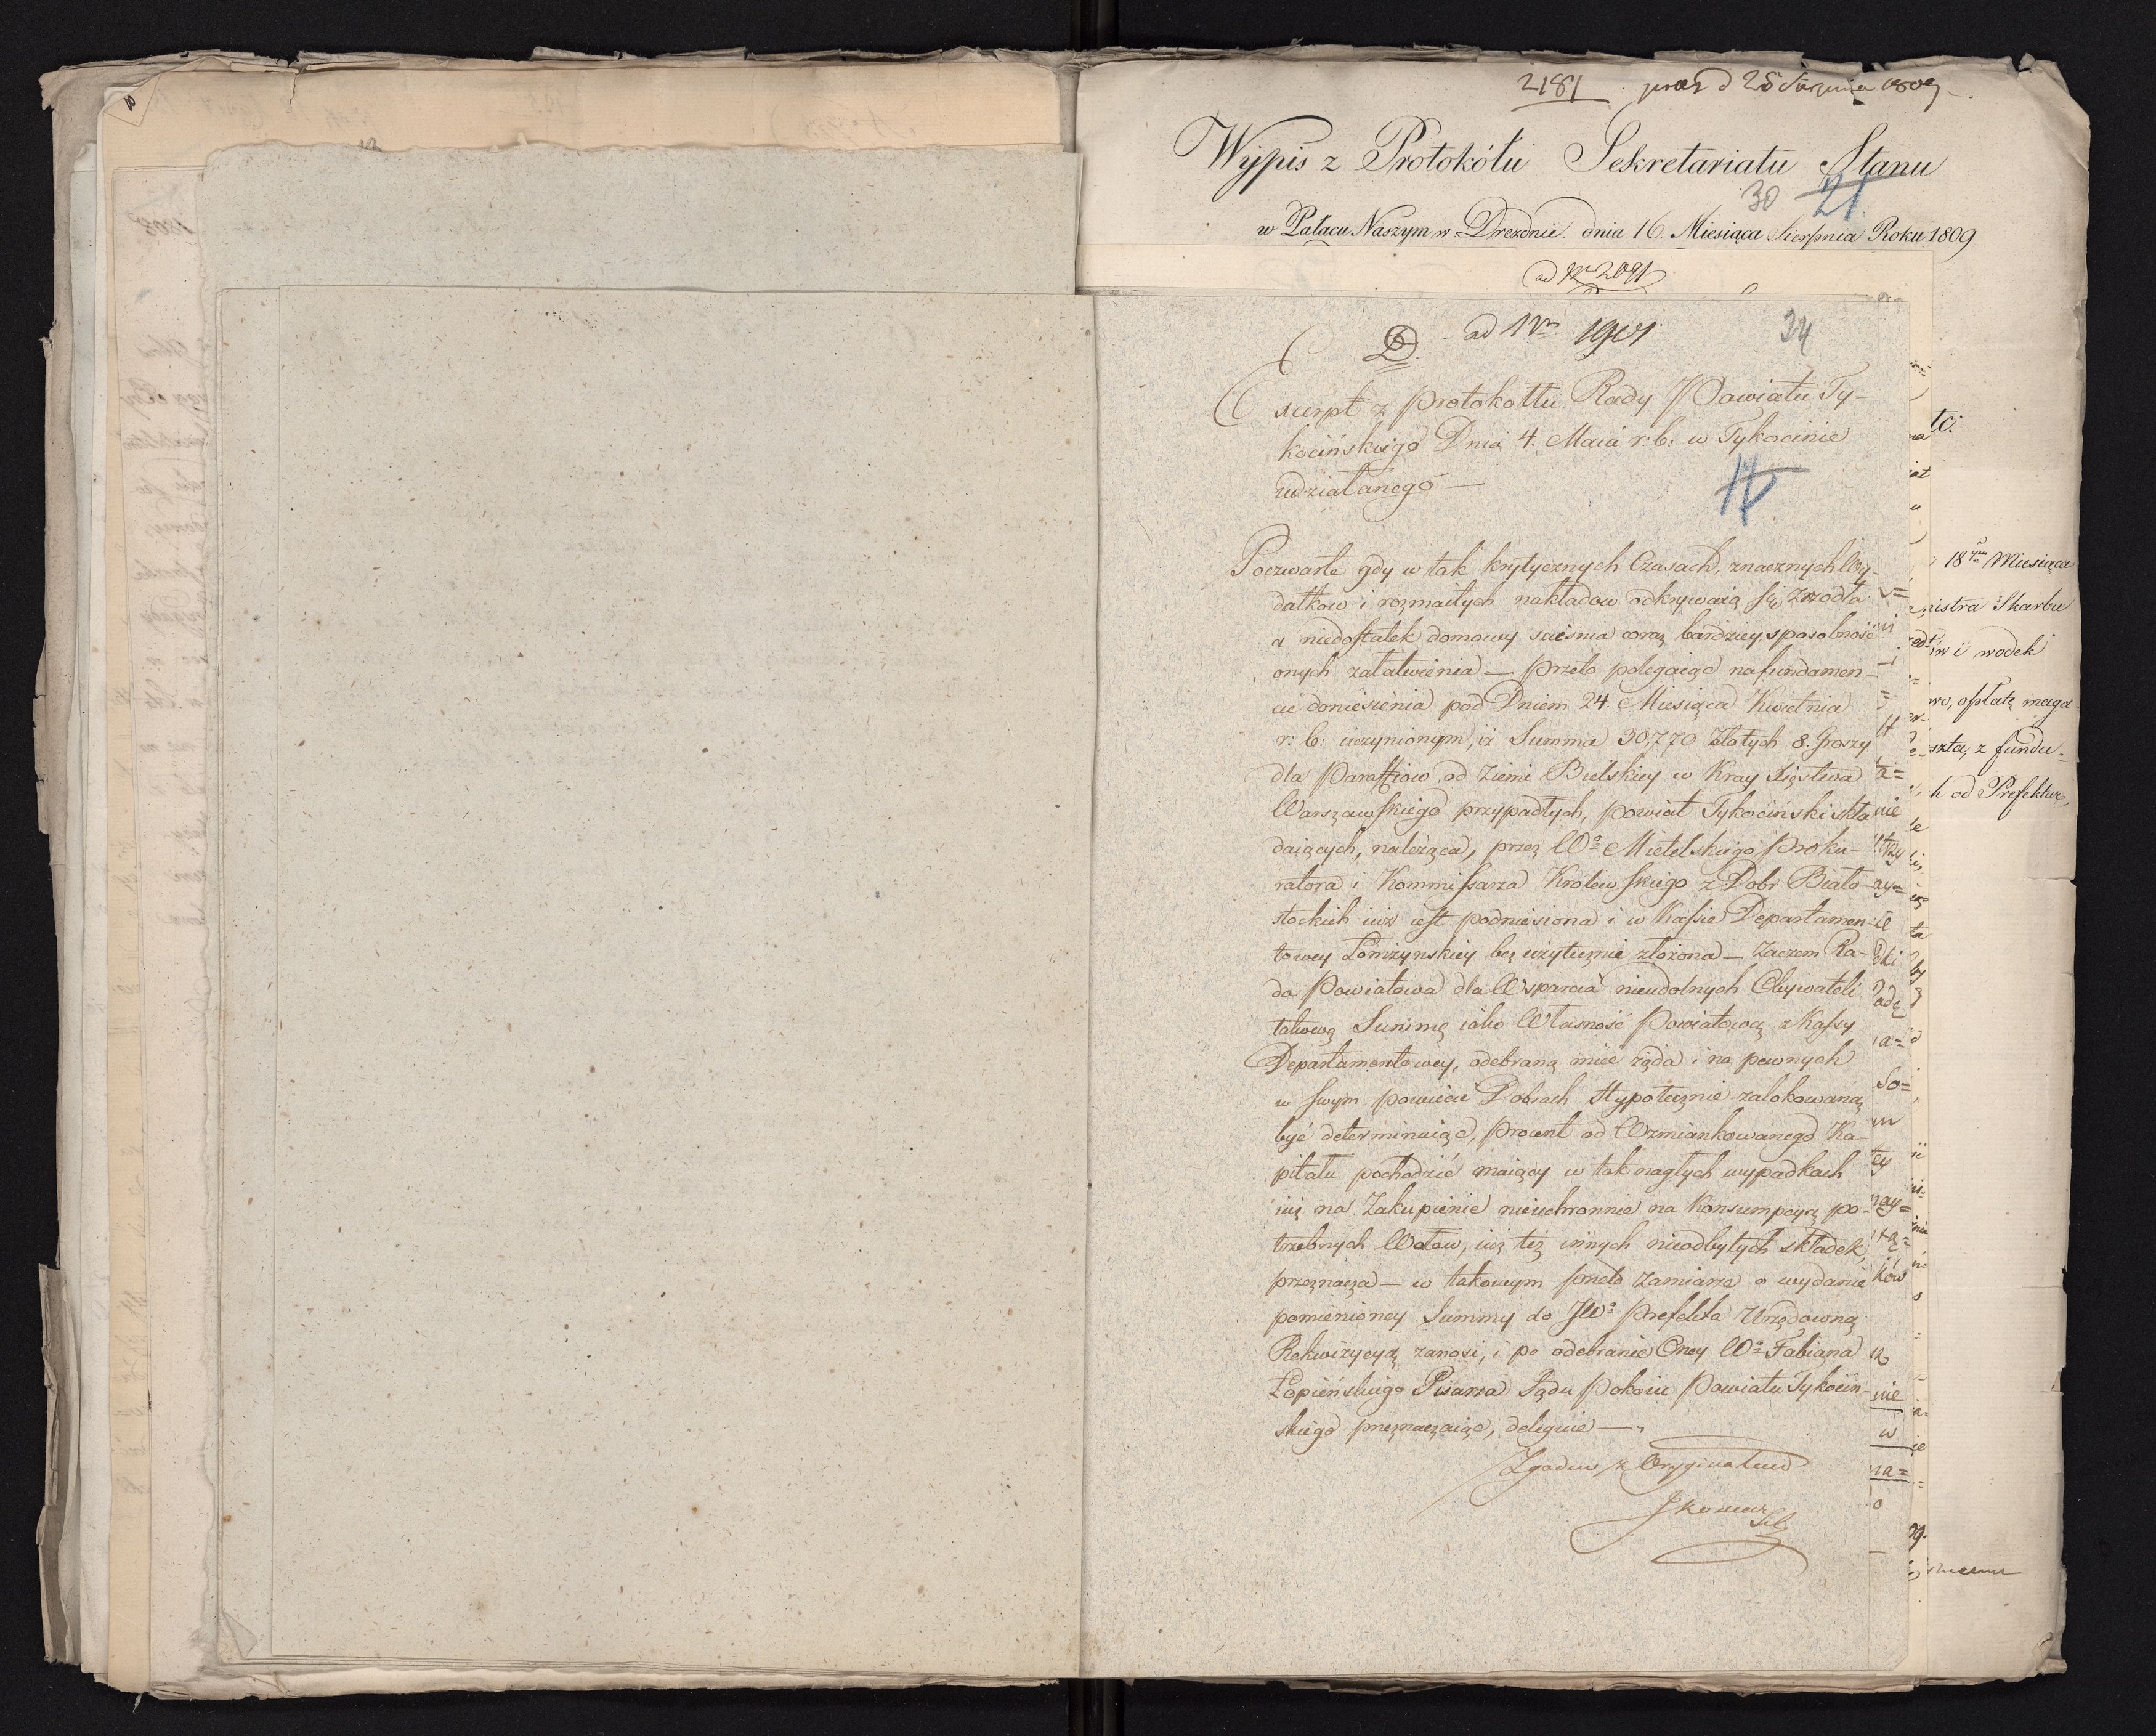 2181 prae d 25 Sierpnia 1809
Wypis z Protokółu Sekretariatu Stanu
30 21
w Pałacu Naszym w Dreznie dnia 16. Miesiąca Sierpnia Roku 1809
ad Nr 2091
D. ad Nrm 1901 24
Excerpt z protokołłu Rady Powiatu Ty-
kocińskiego Dnia 4. Maia r: b: w Tykocinie
udziałanego —
17
Poczwarte gdy w tak krytycznych Czasach, znacznych Wy-
datkow i rozmaitych nakładow odkrywaią się zrzodła
a niedostatek domowy sciesnia coraz bardziey sposobność
onych załatwienia — przeto polegaiąc na fundamen-
cie doniesienia pod Dniem 24. Miesiąca Kwietnia
r: b: uczynionym, iż Summa 30,770 Złotych 8. Groszy
dla Paraffiow od Ziemi Bielskiey w Kray Xięstwa
Warszawskiego przypadłych, powiat Tykociński skła
daiących, należąca, przez Wo Mielelskiego Proku-
ratora i Kommissarza Krolewskiego z Dobr Biało-
stockich iuż iest podniesiona i w Kassie Departamen-
towey Łomżynskiey bez użytecznie złożona — Zaczem Ra-
da Powiatowa dla Wsparcia nieudolnych Obywateli
takową Summę iako Własność Powiatową z Kassy
Departamentowey, odebraną mieć żąda i na pewnych
w swym powiecie Dobrach Hypotecznie zalokowaną
być determinuiąc, procent od Wzmiankowanego Ka-
pitału pochodzić maiący w tak nagłych wypadkach
iuż na Zakupienie nieuchronnie na Konsumpcyą po-
trzebnych Wołow, iuż też innych nieodbytych składek
przeznacza — w takowym przeto zamiarze o wydanie
pomienioney Summy do JWo Prefekta Urzędowną
Rekwizycyą zanosi, i po odebranie Oney Wo Fabiana
Łopieńskiego Pisarza Sądu Pokoiu Powiatu Tykociń-
skiego przeznaczaiąc, deleguie —
Zgodno z Oryginałem
tc.
18ym Miesiąca
nistra Skarbu
ów i wodek
wo, opłatę maga-
szta, z fundu-
h od Prefektur,